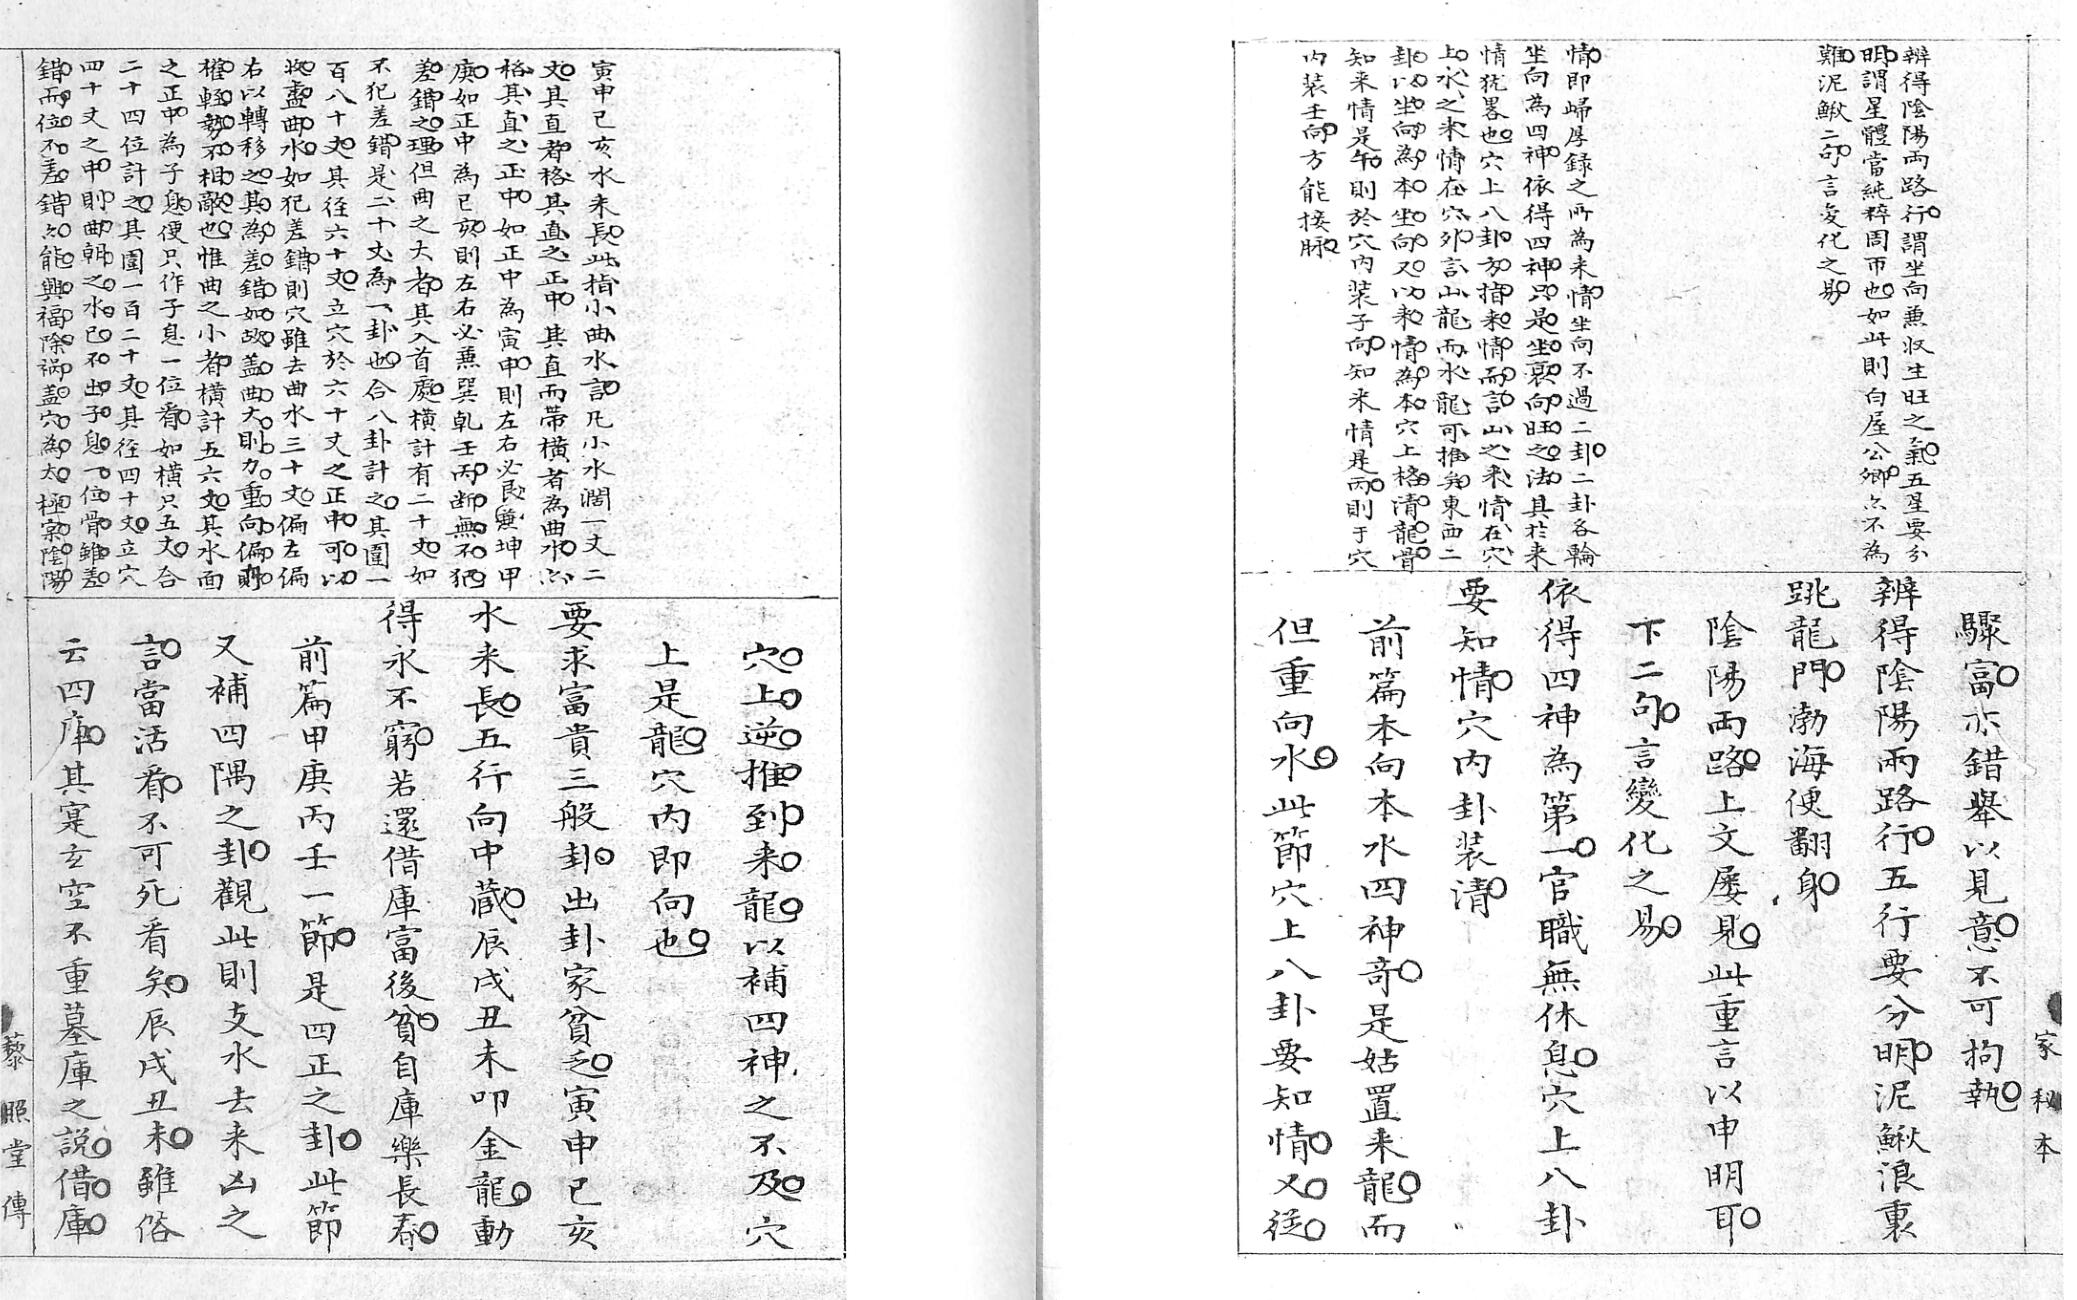 辨得陰陽兩路行謂坐向兼收生旺之氣五星要分
明謂星體當純粹周帀也如此則白屋公卿亦不為
難泥鰍二句言変化之易
情即㷌厚録之所為来情坐向不過二卦二卦各輪
坐向為四神依得四神只是坐衰向旺之法其扵来
情犹畧也穴上八卦方指来情而言山之来情在穴
上水之来情在穴外言山龍而水龍可推矣東西二
卦以坐向為本坐向又以来情為本穴上格清龍骨
知来情是午則於穴内装子向知来情是丙則于穴
内装壬向方能接脉
驟富亦錯舉以見意不可拘執
辨得陰陽兩路行五行要分明泥鰍浪裏
跳龍門渤海便翻身
陰陽两路上文屡見此重言以申明耳
下二句言變化之易
依得四神為第一官職無休息穴上八卦
要知情穴内卦装清
前篇本向本水四神奇是姑置来龍而
但重向水此節穴上八卦要知情又從
家秘本
寅申巳亥水来長此指小曲水言凡小水濶一丈二
丈其直者格其直之正中其直而帶横者為曲水亦
格其直之正中如正中為寅申則左右必艮兼坤甲
庚如正中為巳亥則左右必兼巽乹壬丙断無不犯
差錯之理但曲之大者其入首處横計有二十丈如
不犯差錯是二十丈為一卦也合八卦計之其圍一
百八十丈其徑六十丈立穴於六十丈之正中可以
收盡曲水如犯差錯則穴雖去曲水三十丈偏左偏
右以轉移之其為差錯如故盖曲大則力重向偏則
權輕勢不相敵也惟曲之小者横計五六丈其水面
之正中為子息便只作子息一位看如横只五丈合
二十四位計之其圍一百二十丈其徑四十丈立穴
四十丈之中則曲朝之水已不出子息一位骨雖差
錯而位不差錯亦能興福除禍盖穴為太極宲陰陽
穴上逆推到来龍以補四神之不及穴
上是龍穴内即向也
要求富貴三般卦出卦家貧乏寅申巳亥
水来長五行向中藏辰戌丑未叩金龍動
得永不窮若還借庫富後貧自庫樂長春
前篇甲庚丙壬一節是四正之卦此節
又補四隅之卦觀此則支水去来凶之
言當活看不可死看矣辰戌丑未雖俗
云四庫其寔玄空不重墓庫之說借庫
藜照堂傳